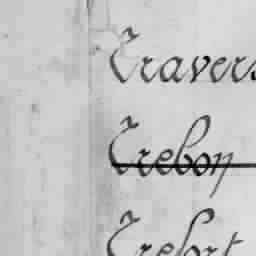 Travers
Trebon
Trefort